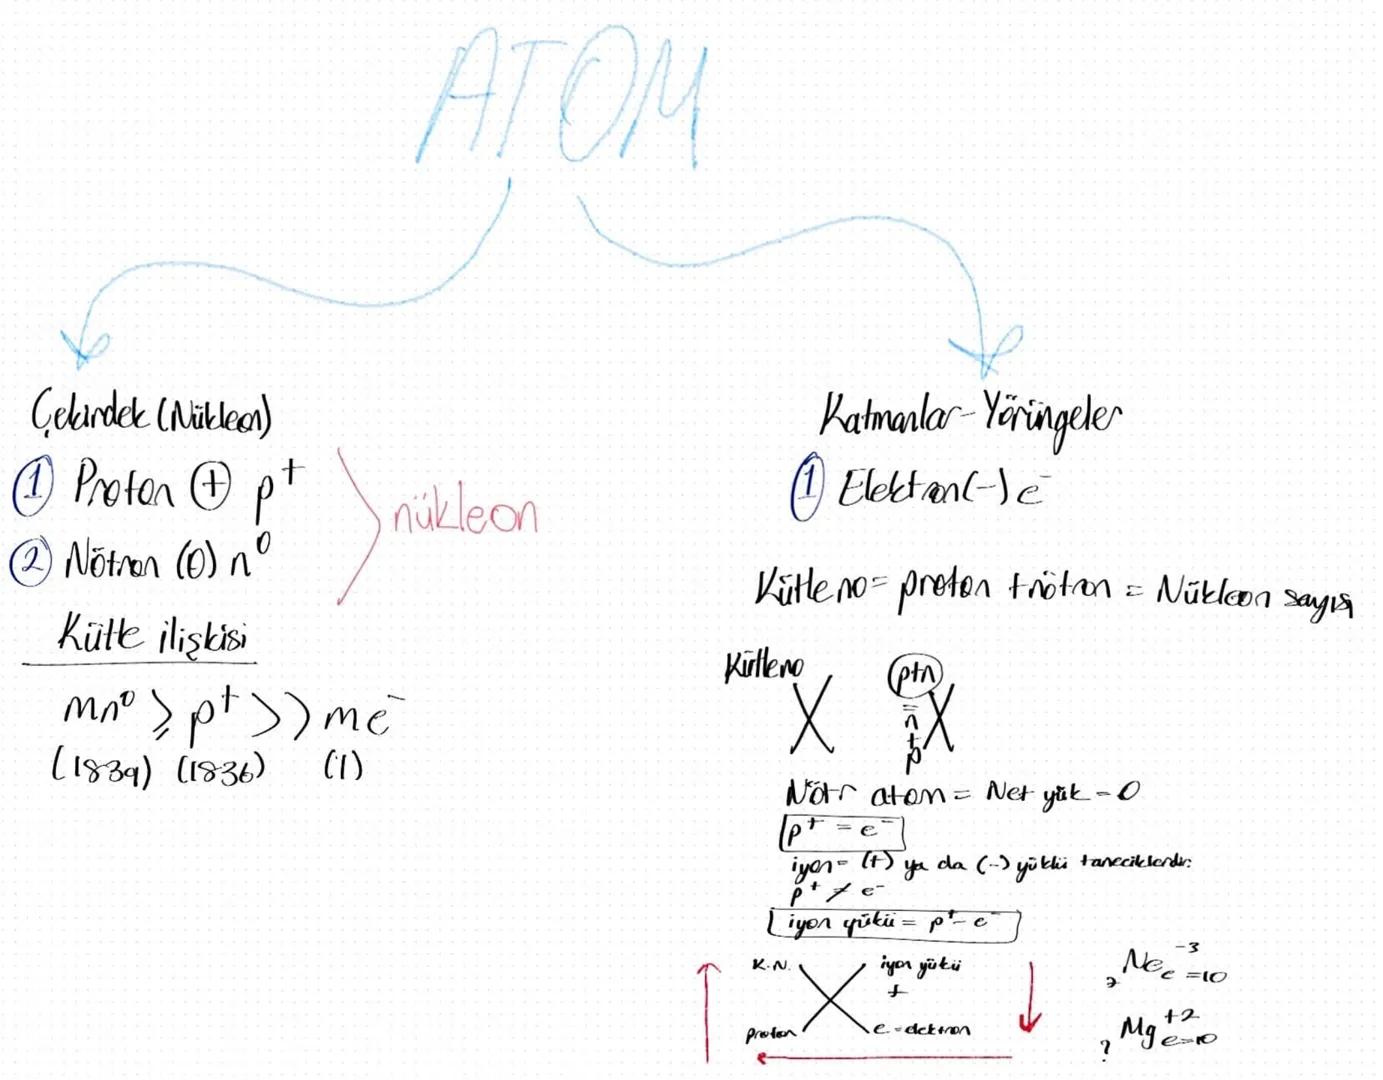 ATOM
Çekirdek (Nükleon)
① Proton (+) p⁺
② Nötron (0) n⁰
nükleon
Kütle ilişkisi
mn⁰ ≥ p⁺ >> me⁻
(1839) (1836) (1)
Katmanlar-Yörüngeler
① Elektron(-) e⁻
Kütle no = proton + nötron = Nükleon sayısı
Kütle no
X
p+n
=
n
+
p
X
Nötr atom = Net yük = 0
p⁺ = e⁻
iyon = (+) ya da (-) yüklü taneciklerdir.
p⁺ ≠ e⁻
iyon yükü = p⁺ - e⁻
K.N.
iyon yükü
+
proton
e = elektron
₇Ne⁻³ e=10
?Mg⁺² e=10